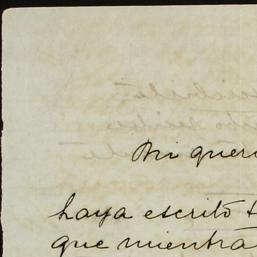 Mi quer
haya escrito t
que mientra